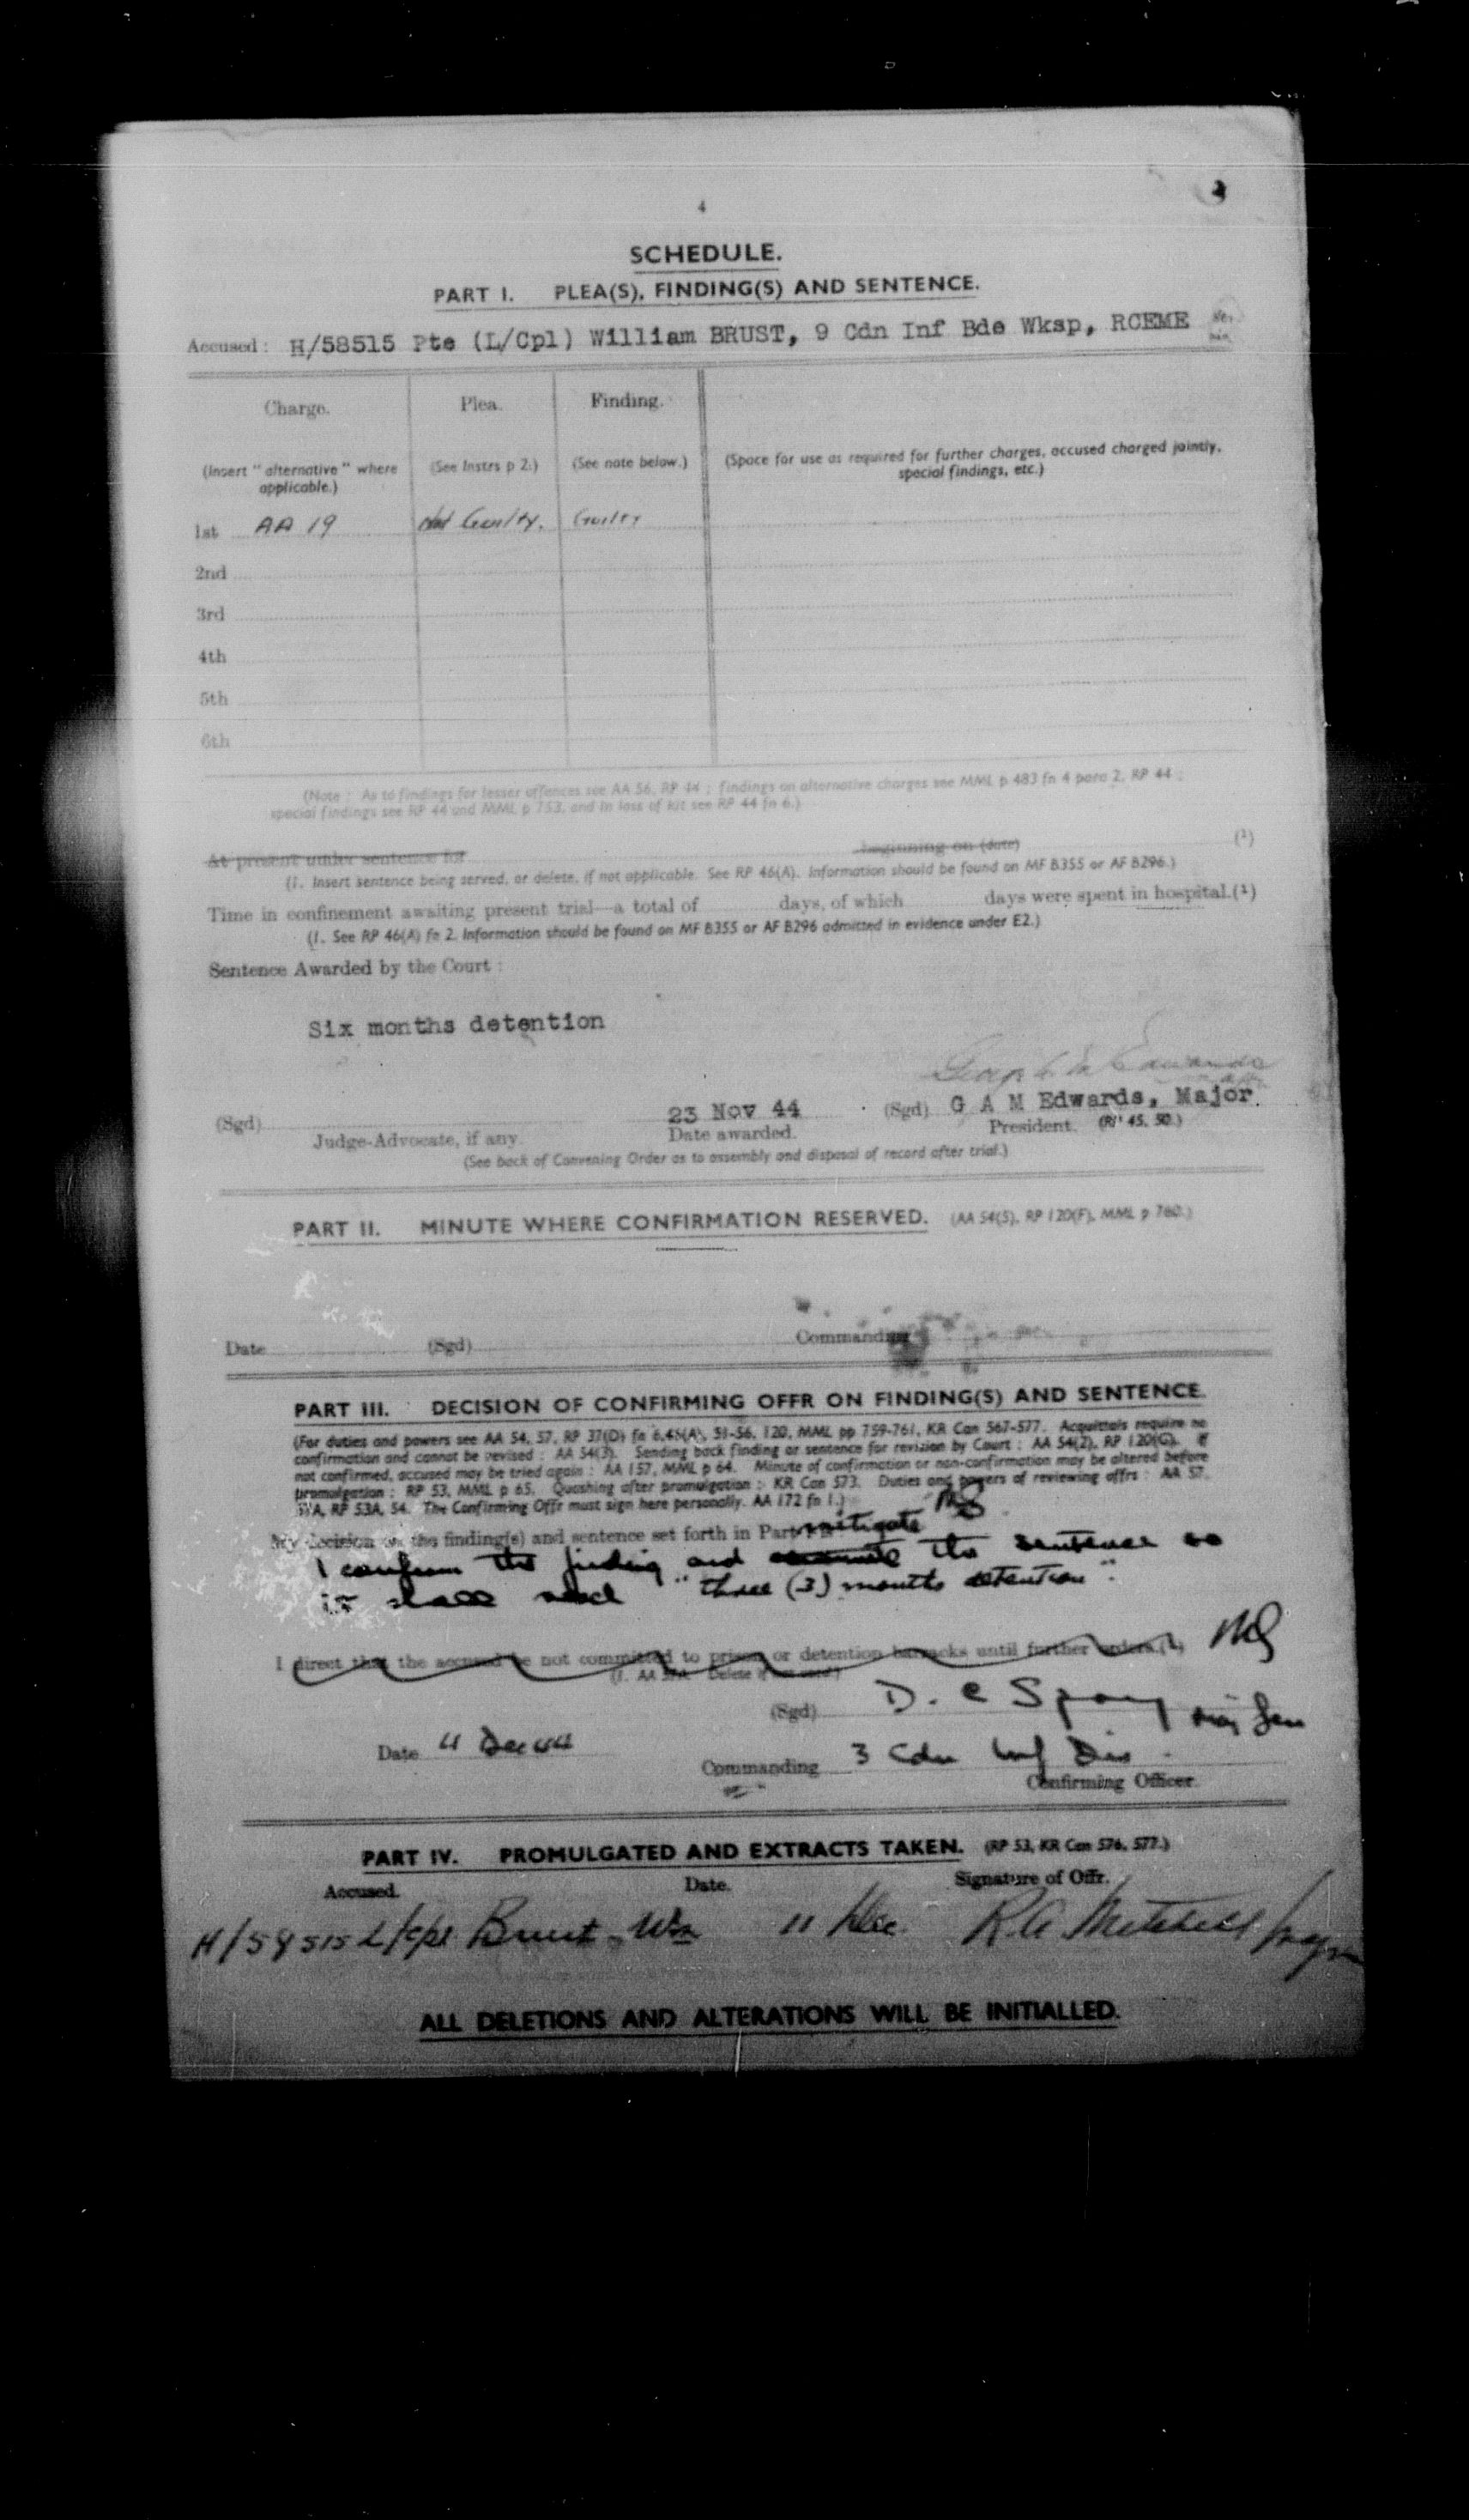 4
SCHEDULE.
PART I. PLEA(S), FINDING(S) AND SENTENCE.
Accused: H/58515 Pte (L/Cpl) William BRUST, 9 Cdn Inf Bde Wksp, RCEME
Charge. Plea. Finding.
(Insert "alternative" where applicable.) (See Instrs p 2.) (See note below.) (Space for use as required for further charges, accused charged jointly, special findings, etc.)
1st AA 19 Not Guilty. Guilty
2nd
3rd
4th
5th
6th
(Note: As to findings for lesser offences see AA 56, RP 44; findings on alternative charges see MML p 483 fn 4 para 2, RP 44;
special findings see RP 44 and MML p 753, and in loss of kit see RP 44 fn 6.)
At present under sentence for beginning on (date) (¹)
(1. Insert sentence being served, or delete, if not applicable. See RP 46(A). Information should be found on MF B355 or AF B296.)
Time in confinement awaiting present trial—a total of days, of which days were spent in hospital.(¹)
(1. See RP 46(A) fn 2. Information should be found on MF B355 or AF B296 admitted in evidence under E2.)
Sentence Awarded by the Court:
Six months detention
23 Nov 44 (Sgd) G A M Edwards, Major.
(Sgd) Judge-Advocate, if any. Date awarded. President. (RP 45, 50.)
(See back of Convening Order as to assembly and disposal of record after trial.)
PART II. MINUTE WHERE CONFIRMATION RESERVED. (AA 54(5), RP 120(F), MML p 760.)
Date (Sgd) Commanding
PART III. DECISION OF CONFIRMING OFFR ON FINDING(S) AND SENTENCE.
(For duties and powers see AA 54, 57, RP 37(D) fn 6, 46(A), 51-56, 120, MML pp 759-761, KR Can 567-577. Acquittals require no
confirmation and cannot be revised: AA 54(3). Sending back finding or sentence for revision by Court: AA 54(2), RP 120(G). If
not confirmed, accused may be tried again: AA 157, MML p 64. Minute of confirmation or non-confirmation may be altered before
promulgation: RP 53, MML p 65. Quashing after promulgation: KR Can 573. Duties and powers of reviewing offrs: AA 57,
57A, RP 53A, 54. The Confirming Offr must sign here personally. AA 172 fn 1.)
My decision on the finding(s) and sentence set forth in Part I is mitigate
I confirm the finding and commute the sentence so
it shall read "three (3) months detention".
I direct that the accused be not committed to prison or detention barracks until further orders.(1)
(1. AA 57A. Delete if not used.)
(Sgd) D. C Spry Maj Gen
Date 11 Dec 44 Commanding 3 Cdn Inf Div
Confirming Officer.
PART IV. PROMULGATED AND EXTRACTS TAKEN. (RP 53, KR Can 576, 577.)
Accused. Date. Signature of Offr.
H/58515 L/Cpl Brust Wm 11 Dec. R.A. Mitchell
ALL DELETIONS AND ALTERATIONS WILL BE INITIALLED.